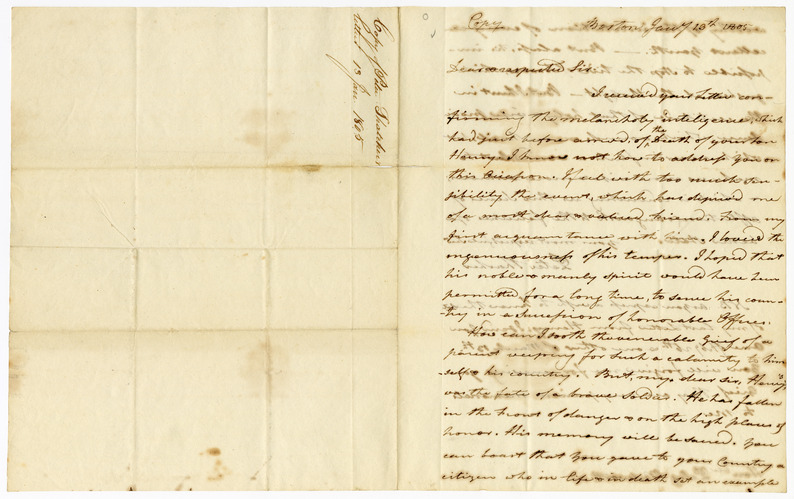 Copy of Peter Thatchers
letter 13 Jan. 1805
Copy Boston Jany 13th 1805
Dear & respected Sir
I received your letter con-
firming the melancholy inteligence, which
had just before arrived, of the Death of your son
Henry. I know not how to address you on
this occasion. I feel with too much sen-
sibility the event, which has deprived me
of a most dear & valued friend. From my
first acquaintance with him, I loved the
ingenuousness of his temper. I hoped that
his noble & manly spirit would have been
permitted for a long time, to serve his coun-
try in a succession of honorable Offices.
How can I sooth the venerable grief of a
parent weeping for such a calamity to him
self & his country. But, my dear sir, Henry's
was the fate of a brave Soldier. He has fallen
in the front of danger & on the high places of
honor. His memory will be sacred. You
can boast that you gave to your Country a
citizen who in life & in death set an example